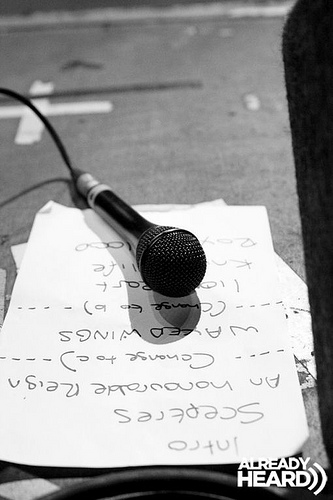 Intro
Sceptres
An Honourable Reign
--- (Change to c) ---
WAXED WINGS
--- (Change to b) ---
Life
1000
ALREADY
HEARD